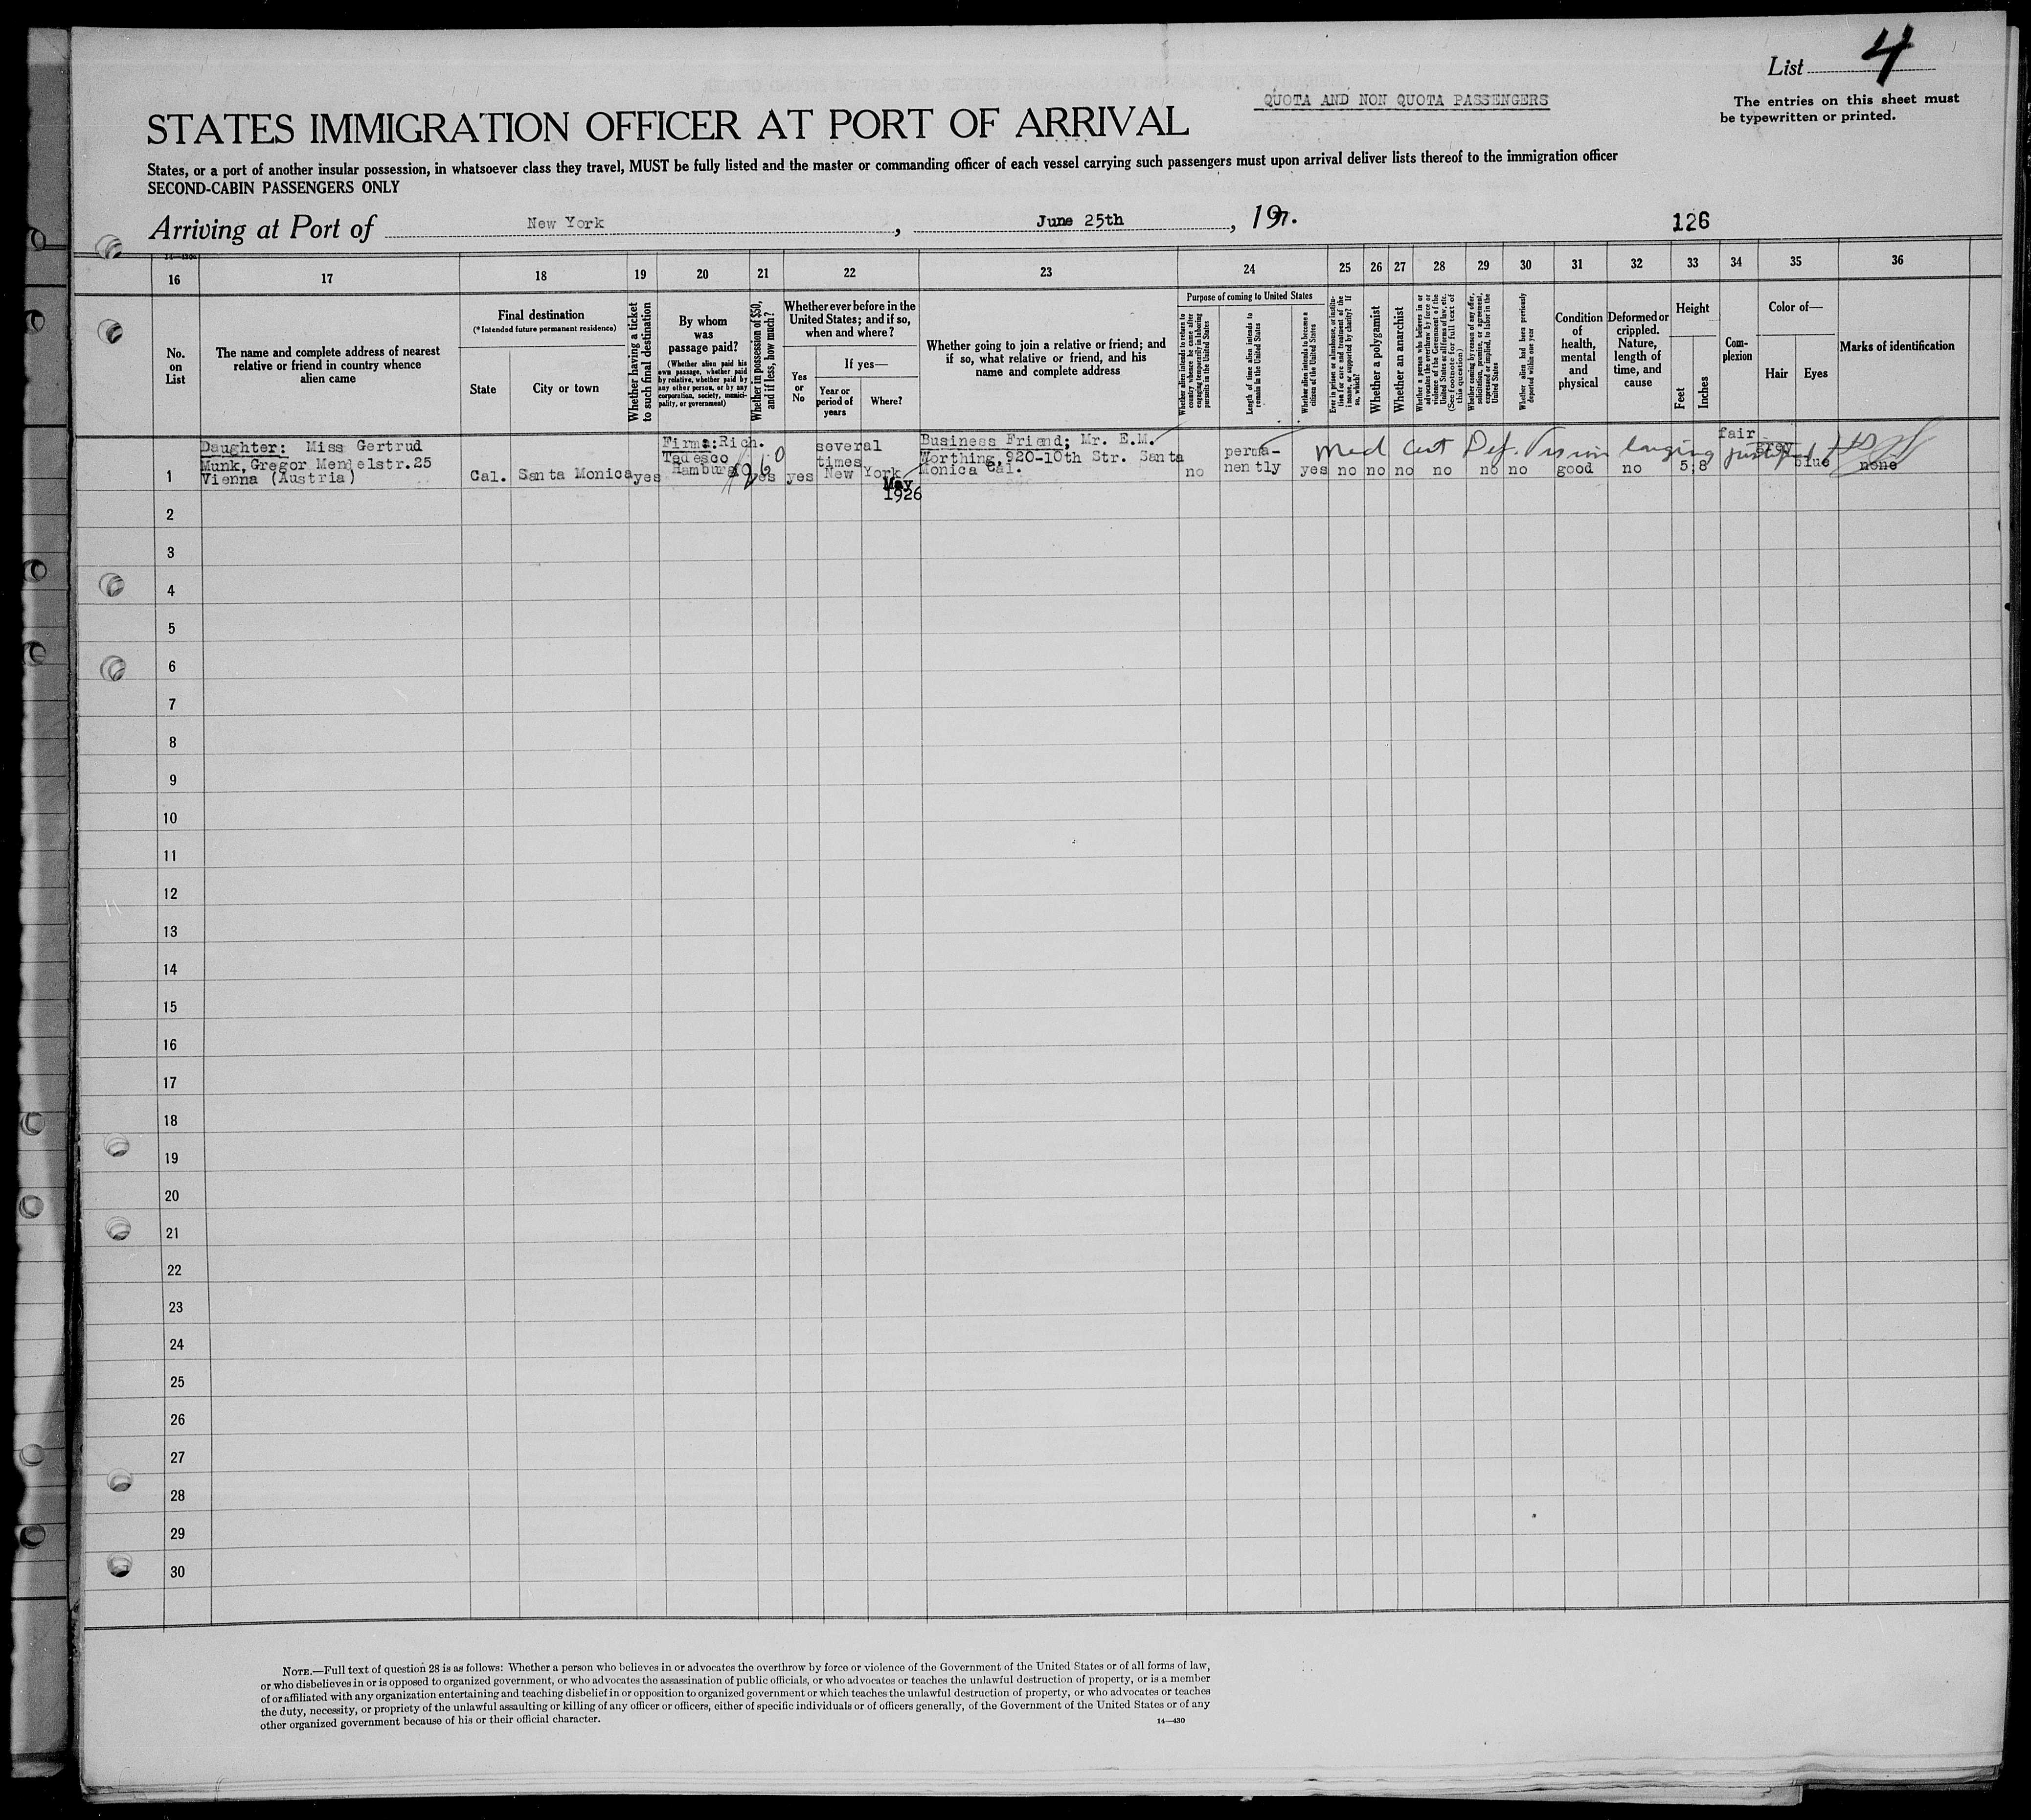 List 4
QUOTA AND NON QUOTA PASSENGERS
The entries on this sheet must
be typewritten or printed.
STATES IMMIGRATION OFFICER AT PORT OF ARRIVAL
States, or a port of another insular possession, in whatsoever class they travel, MUST be fully listed and the master or commanding officer of each vessel carrying such passengers must upon arrival deliver lists thereof to the immigration officer
SECOND-CABIN PASSENGERS ONLY
Arriving at Port of New York, June 25th, 19
126
16 17 18 19 20 21 22 23 24 25 26 27 28 29 30 31 32 33 34 35 36
No.
on
List
The name and complete address of nearest
relative or friend in country whence
alien came
Final destination
(*Intended future permanent residence)
State
City or town
Whether having a ticket
to such final destination
By whom
was
passage paid?
(Whether alien paid his
own passage, whether paid
by relative, whether paid by
any other person, or by any
corporation, society, munici-
pality, or government)
Whether in possession of $50,
and if less, how much?
Whether ever before in the
United States; and if so,
when and where?
Yes
or
No
If yes—
Year or
period of
years
Where?
Whether going to join a relative or friend; and
if so, what relative or friend, and his
name and complete address
Purpose of coming to United States
Whether alien intends to return to
country whence he came after
engaging temporarily in laboring
pursuits in the United States
Length of time alien intends to
remain in the United States
Whether alien intends to become a
citizen of the United States
Ever in prison or almshouse, or institu-
tion for care and treatment of the
insane, or supported by charity? If
so, which?
Whether a polygamist
Whether an anarchist
Whether a person who believes in or
advocates the overthrow by force or
violence of the Government of the
United States or all forms of law, etc.
(See footnote for full text of
this question)
Whether coming by reason of any offer,
solicitation, promise, or agreement,
expressed or implied, to labor in the
United States
Whether alien had been previously
deported within one year
Condition
of
health,
mental
and
physical
Deformed or
crippled.
Nature,
length of
time, and
cause
Height
Feet
Inches
Com-
plexion
Color of—
Hair
Eyes
Marks of identification
1
Daughter: Miss Gertrud
Munk, Gregor Mendelstr.25
Vienna (Austria)
Cal. Santa Monica yes
Firma: Rich.
Tadesco
Hamburg
yes yes
several
times
New York
May
1926
Business Friend; Mr. E.M.
Worthing, 920-10th Str. Santa
Monica Cal.
no
perma-
nently
yes no no no no no no good no 5 8
Med Cert Def. Vision
fair
grey
blue
none
2
3
4
5
6
7
8
9
10
11
12
13
14
15
16
17
18
19
20
21
22
23
24
25
26
27
28
29
30
NOTE.—Full text of question 28 is as follows: Whether a person who believes in or advocates the overthrow by force or violence of the Government of the United States or of all forms of law,
or who disbelieves in or is opposed to organized government, or who advocates the assassination of public officials, or who advocates or teaches the unlawful destruction of property, or is a member
of or affiliated with any organization entertaining and teaching disbelief in or opposition to organized government or which teaches the unlawful destruction of property, or who advocates or teaches
the duty, necessity, or propriety of the unlawful assaulting or killing of any officer or officers, either of specific individuals or of officers generally, of the Government of the United States or of any
other organized government because of his or their official character.
14—430